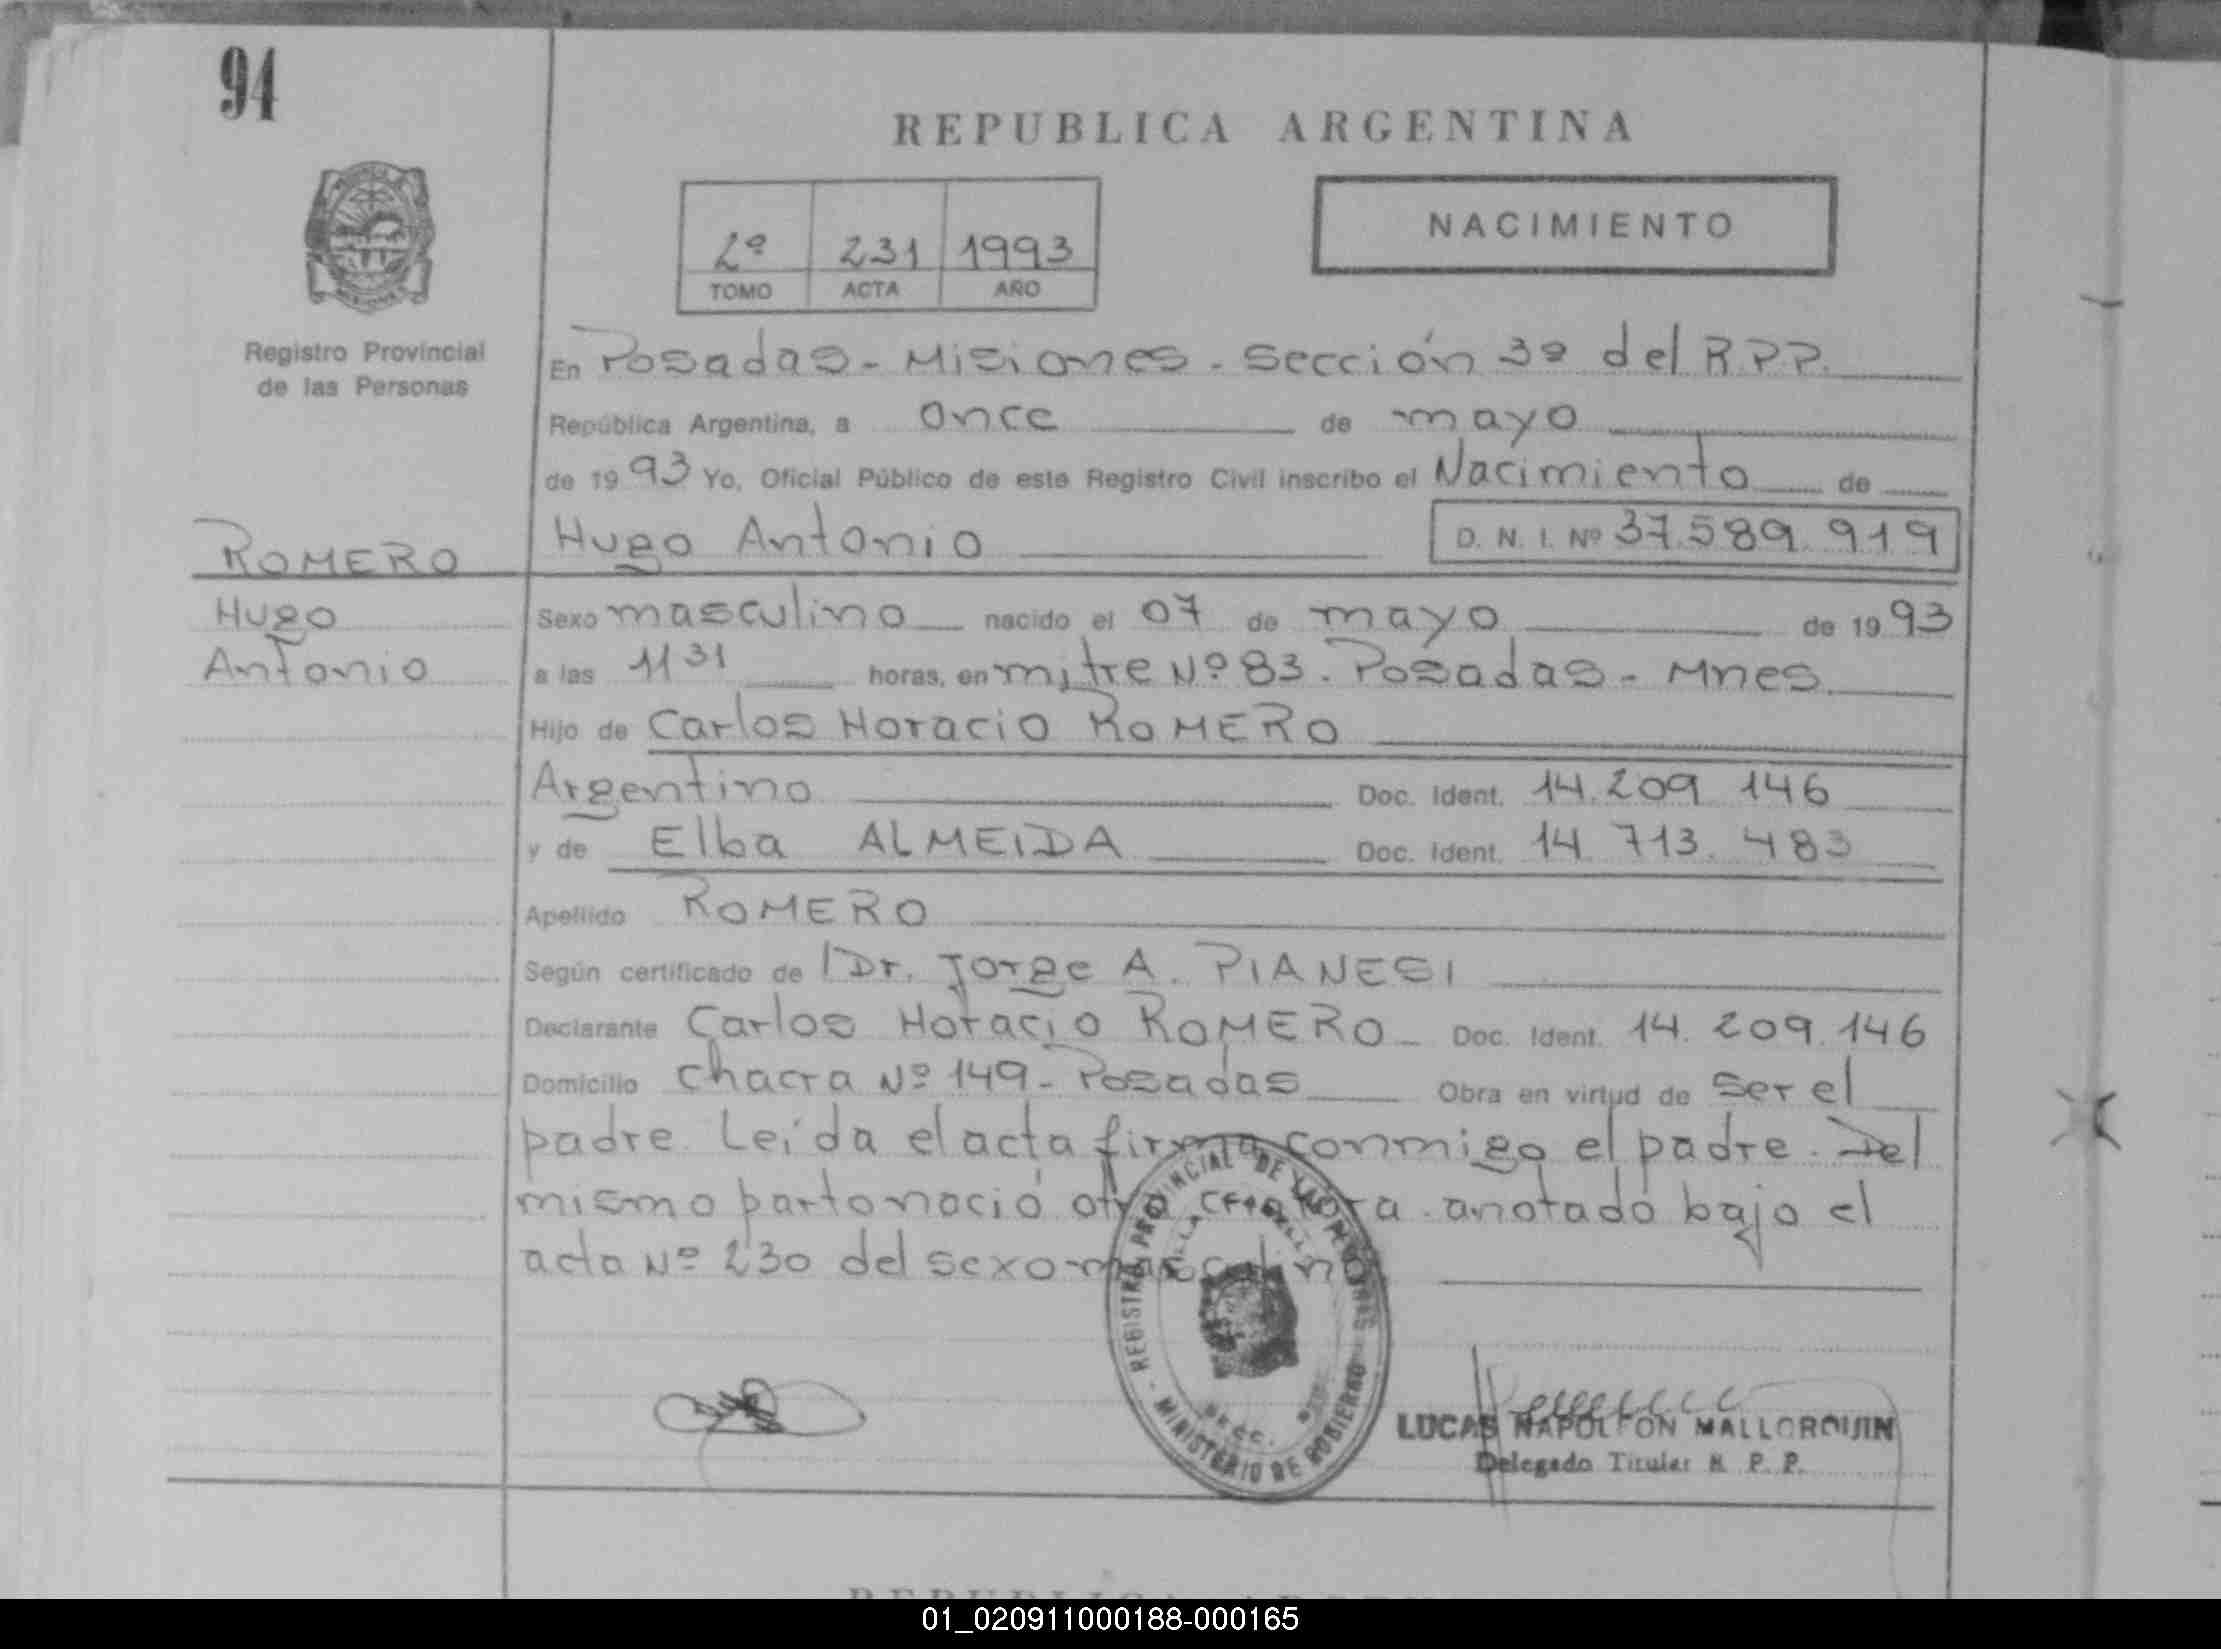 94
REPUBLICA ARGENTINA
2º 231 1993
TOMO ACTA AÑO
NACIMIENTO
Registro Provincial
de las Personas
En Posadas - Misiones - Sección 3º del R.P.P.
República Argentina, a once de mayo
de 1993 Yo, Oficial Público de este Registro Civil inscribo el Nacimiento de
Hugo Antonio D. N. I. Nº 37.589.919
ROMERO
Hugo
Antonio
Sexo masculino nacido el 07 de mayo de 1993
a las 11 31 horas, en mitre Nº 83. Posadas - Mnes.
Hijo de Carlos Horacio ROMERO
Argentino Doc. Ident. 14.209.146
y de Elba ALMEIDA Doc. Ident. 14.713.483
Apellido ROMERO
Según certificado de Dr. Jorge A. PIANESI
Declarante Carlos Horacio ROMERO - Doc. Ident. 14.209.146
Domicilio Chacra Nº 149 - Posadas Obra en virtud de ser el
padre. Leída el acta firma conmigo el padre. Del
mismo parto nació otra criatura anotado bajo el
acta Nº 230 del sexo masculino
REGISTRO PROVINCIAL DE LAS PERSONAS
MINISTERIO DE GOBIERNO
LUCAS NAPOLEON MALLORQUIN
Delegado Titular R. P. P.
01_020911000188-000165